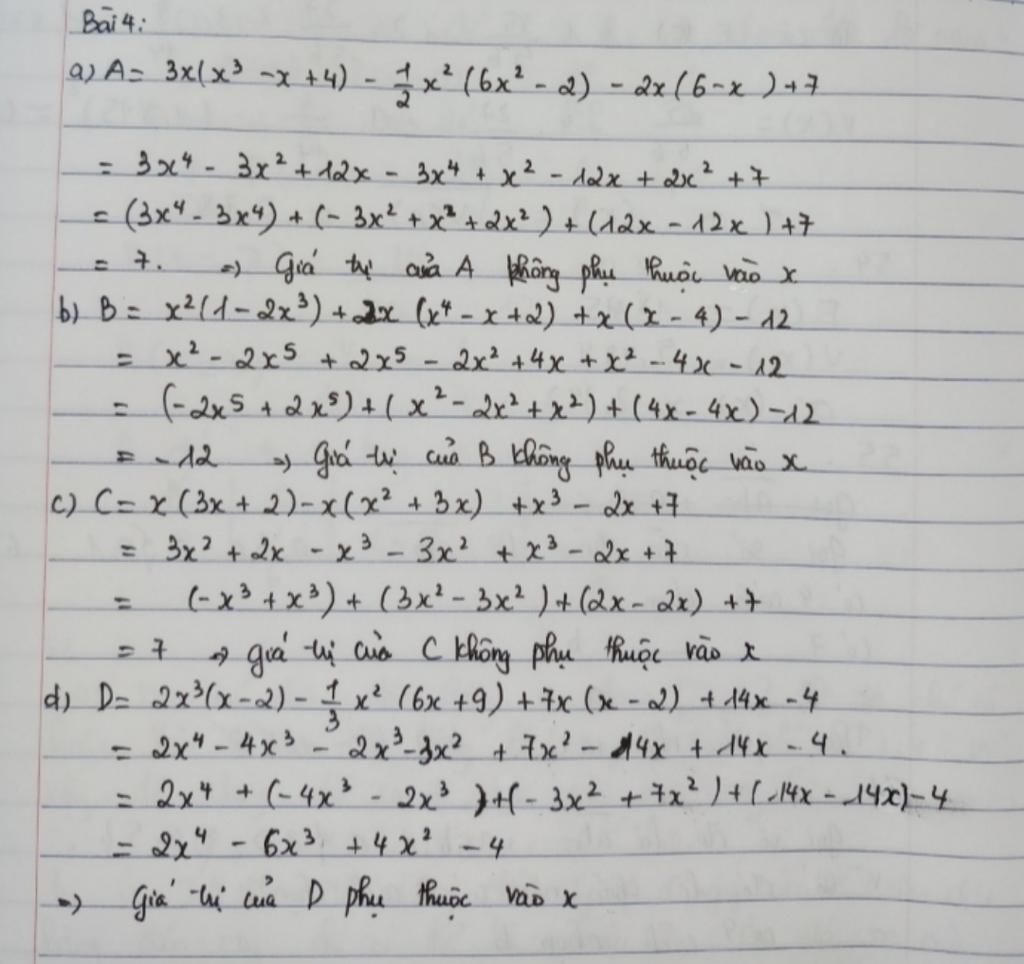 Bài 4:
a) A = 3x(x³ - x + 4) - 1/2 x² (6x² - 2) - 2x(6 - x) + 7
= 3x⁴ - 3x² + 12x - 3x⁴ + x² - 12x + 2x² + 7
= (3x⁴ - 3x⁴) + (-3x² + x² + 2x²) + (12x - 12x) + 7
= 7. => Giá trị của A không phụ thuộc vào x
b) B = x²(1 - 2x³) + 2x (x⁴ - x + 2) + x(x - 4) - 12
= x² - 2x⁵ + 2x⁵ - 2x² + 4x + x² - 4x - 12
= (-2x⁵ + 2x⁵) + (x² - 2x² + x²) + (4x - 4x) - 12
= -12 => Giá trị của B không phụ thuộc vào x
c) C = x(3x + 2) - x(x² + 3x) + x³ - 2x + 7
= 3x² + 2x - x³ - 3x² + x³ - 2x + 7
= (-x³ + x³) + (3x² - 3x²) + (2x - 2x) + 7
= 7 => giá trị của C không phụ thuộc vào x
d) D = 2x³(x - 2) - 1/3 x² (6x + 9) + 7x(x - 2) + 14x - 4
= 2x⁴ - 4x³ - 2x³ - 3x² + 7x² - 14x + 14x - 4.
= 2x⁴ + (-4x³ - 2x³) + (-3x² + 7x²) + (14x - 14x) - 4
= 2x⁴ - 6x³ + 4x² - 4
=> Giá trị của D phụ thuộc vào x